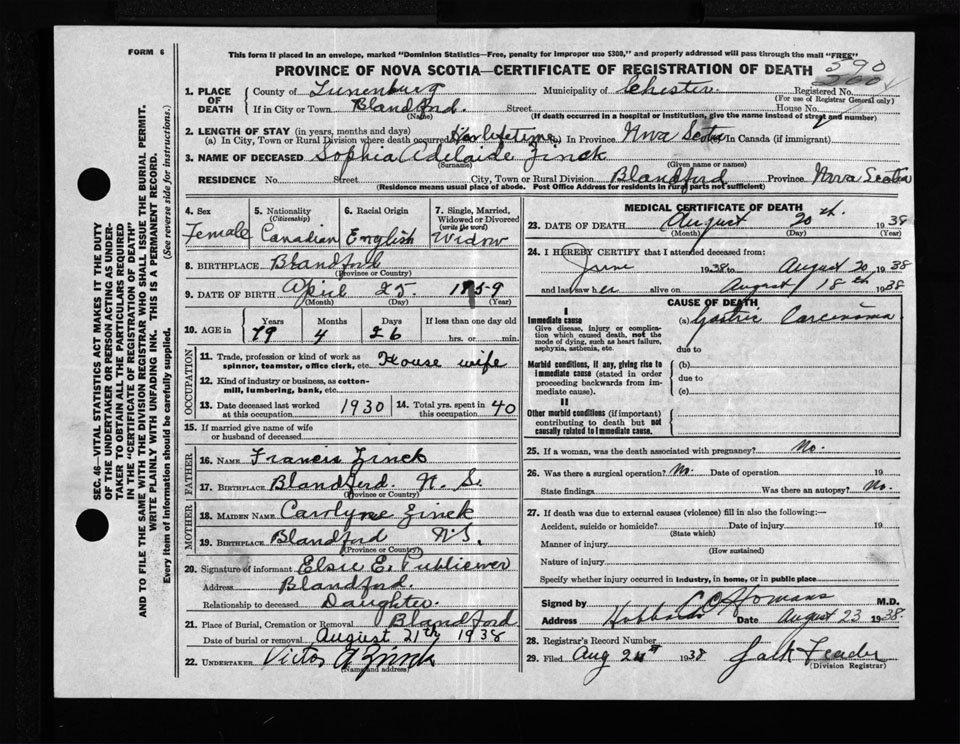 FORM 6
This form if placed in an envelope, marked "Dominion Statistics—Free, penalty for improper use $300," and properly addressed will pass through the mail "FREE"
PROVINCE OF NOVA SCOTIA—CERTIFICATE OF REGISTRATION OF DEATH
590
1. PLACE OF DEATH County of Lunenburg Municipality of Chester Registered No.
(For use of Registrar General only)
If in City or Town Blandford. Street House No.
(Name) (If death occurred in a hospital or institution, give the name instead of street and number)
2. LENGTH OF STAY (in years, months and days)
(a) In City, Town or Rural Division where death occurred Her lifetime In Province Nova Scotia In Canada (if immigrant)
3. NAME OF DECEASED Sophia Adelaide Zinck
(Surname) (Given name or names)
RESIDENCE No. Street City, Town or Rural Division Blandford Province Nova Scotia
(Residence means usual place of abode. Post Office Address for residents in rural parts not sufficient)
SEC. 46—VITAL STATISTICS ACT MAKES IT THE DUTY
OF THE UNDERTAKER OR PERSON ACTING AS UNDER-
TAKER TO OBTAIN ALL THE PARTICULARS REQUIRED
IN THE "CERTIFICATE OF REGISTRATION OF DEATH"
AND TO FILE THE SAME WITH THE DIVISION REGISTRAR WHO SHALL ISSUE THE BURIAL PERMIT.
WRITE PLAINLY WITH UNFADING INK. THIS IS A PERMANENT RECORD.
Every item of information should be carefully supplied. (See reverse side for instructions.)
4. Sex Female
5. Nationality (Citizenship) Canadian
6. Racial Origin English
7. Single, Married, Widowed or Divorced (write the word) Widow
8. BIRTHPLACE Blandford
(Province or Country)
9. DATE OF BIRTH April 25 1859
(Month) (Day) (Year)
10. AGE in Years Months Days If less than one day old
79 4 26 hrs. or min.
OCCUPATION
11. Trade, profession or kind of work as spinner, teamster, office clerk, etc. House wife
12. Kind of industry or business, as cotton-mill, lumbering, bank, etc.
13. Date deceased last worked at this occupation 1930 14. Total yrs. spent in this occupation 40
15. If married give name of wife or husband of deceased
FATHER
16. NAME Francis Zinck
17. BIRTHPLACE Blandford. N. S.
(Province or Country)
MOTHER
18. MAIDEN NAME Carolyne Zinck
19. BIRTHPLACE Blandford N.S.
(Province or Country)
20. Signature of informant Elsie E. Publicover
Address Blandford.
Relationship to deceased Daughter.
21. Place of Burial, Cremation or Removal Blandford
Date of burial or removal August 21th 1938
22. UNDERTAKER Victor A Zinck
(Name and address)
MEDICAL CERTIFICATE OF DEATH
23. DATE OF DEATH August 20th. 1938
(Month) (Day) (Year)
24. I HEREBY CERTIFY that I attended deceased from:
June 1938 to August 20 1938
and last saw her alive on August 18th 1938
CAUSE OF DEATH
I
Immediate cause (a) Gastric Carcinoma
Give disease, injury or complication which caused death, not the mode of dying, such as heart failure, asphyxia, asthenia, etc. due to
Morbid conditions, if any, giving rise to immediate cause (stated in order proceeding backwards from immediate cause). (b)
due to
(c)
II
Other morbid conditions (if important) contributing to death but not causally related to immediate cause.
25. If a woman, was the death associated with pregnancy? No.
26. Was there a surgical operation? No. Date of operation 19
State findings Was there an autopsy? No.
27. If death was due to external causes (violence) fill in also the following:—
Accident, suicide or homicide? Date of injury 19
(State which)
Manner of injury
(How sustained)
Nature of injury
Specify whether injury occurred in industry, in home, or in public place
Signed by C O Homans M.D.
Address Hubbards Date August 23 1938.
28. Registrar's Record Number
29. Filed Aug 24th 1938
(Division Registrar)